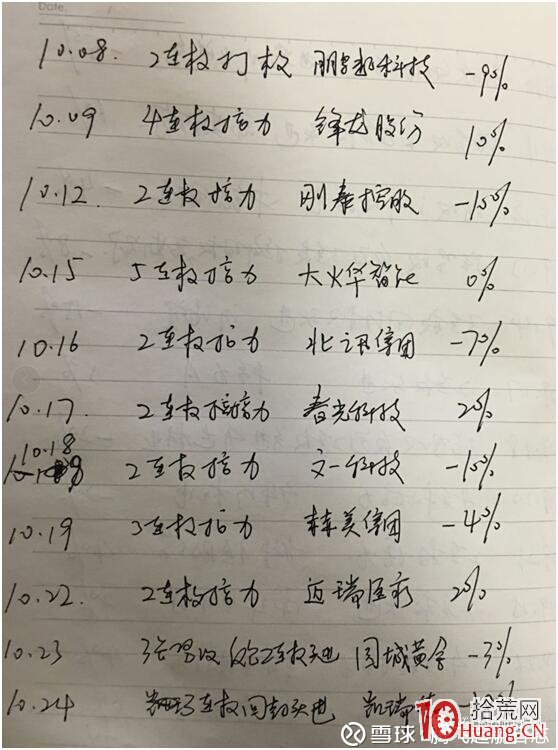 Date.
10.08. 2连板打板 鹏都科技 -9%
10.09 4连板接力 锋龙股份 10%
10.12. 2连板接力 刚泰控股 -10%
10.15 5连板接力 大烨智能 0%
10.16 2连板接力 北讯集团 -7%
10.17. 2连板接力 春光科技 2%
10.18 2连板接力 文一科技 -10%
10.19 3连板接力 森美集团 -4%
10.22. 2连板接力 迈瑞医疗 2%
10.23 2连板 园城黄金 -3%
10.24 连板 凯瑞
雪球
10 拾荒网
Huang.CN